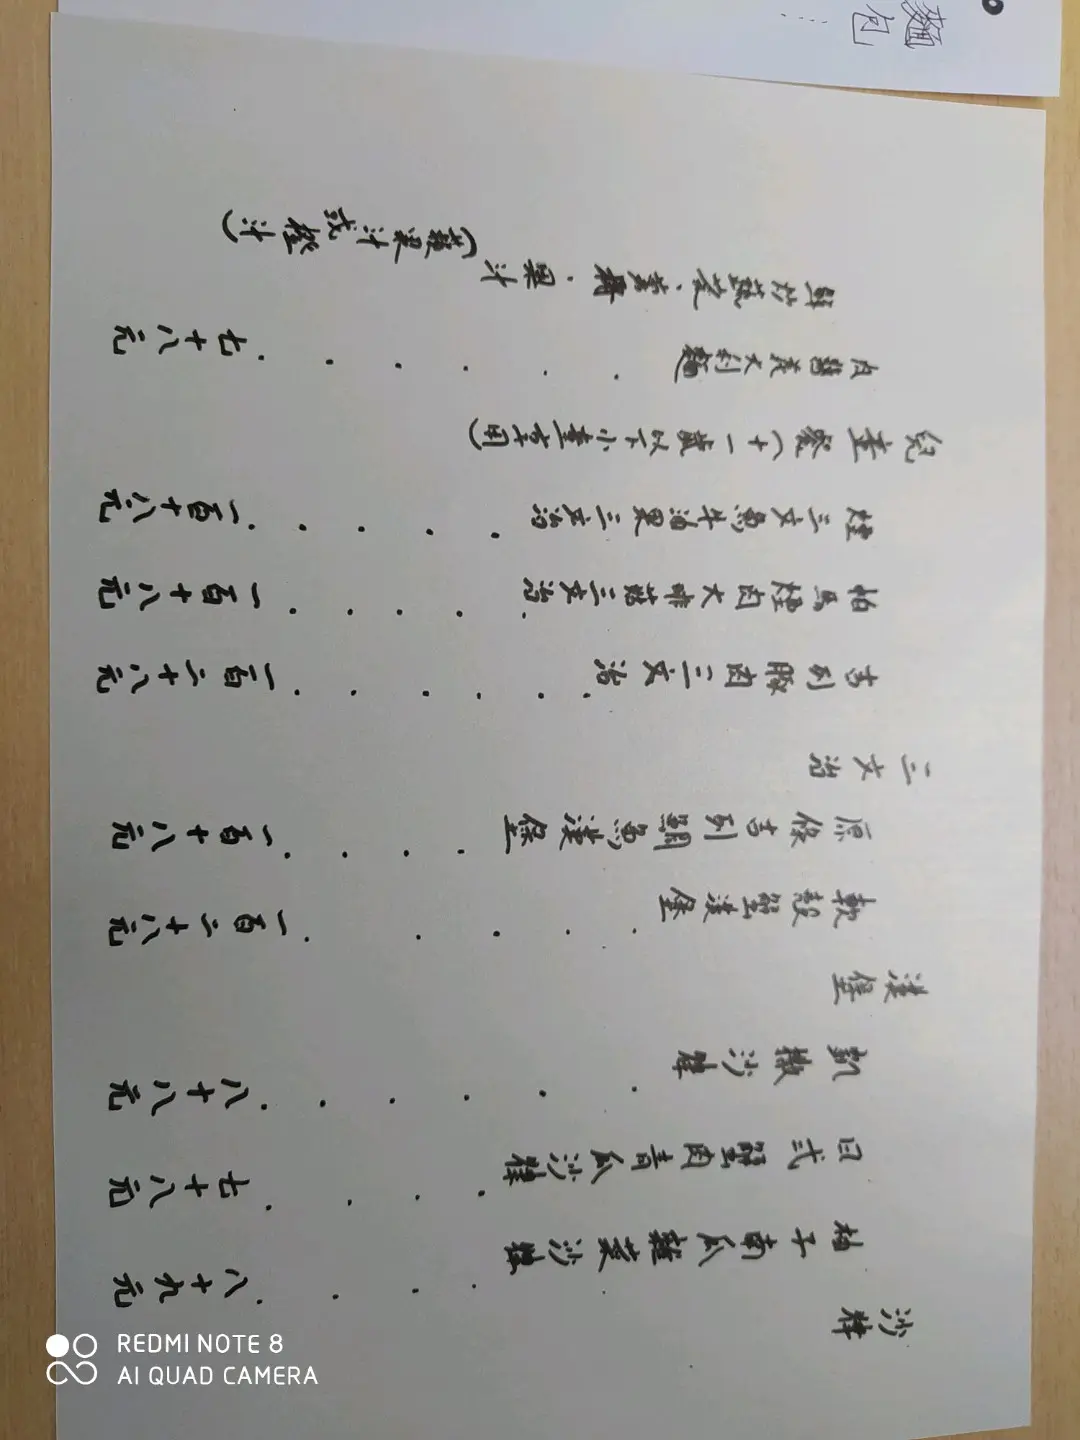 沙律
柚子南瓜雜菜沙律．．．．．八十九元
日式蟹肉青瓜沙律．．．．七十八元
凱撒沙律．．．．．．八十八元
漢堡
軟殼蟹漢堡．．．．．一百二十八元
原條吉列鯛魚漢堡．．．．一百十八元
三文治
吉列豚肉三文治．．．．．．一百二十八元
柏馬煙肉大啡菇三文治．．．．．一百十八元
煙三文魚牛油果三文治．．．．．一百十八元
兒童餐(十一歲以下小童享用)
肉醬意大利麵．．．．．．七十八元
鮮炒蔬菜、薯角、果汁
(蘋果汁或橙汁)
麵包
REDMI NOTE 8
AI QUAD CAMERA